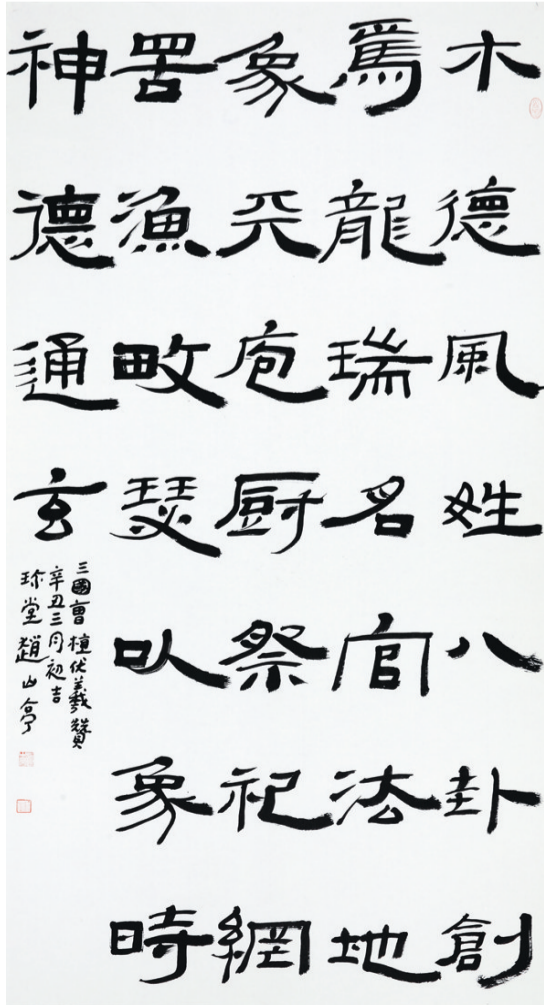 木德風姓八卦創
焉龍瑞名官法地
象天庖厨祭祀網
罟漁畋瑟以象時
神德通玄
三國曹植伏羲贊
辛丑三月初吉
珎堂趙山亭